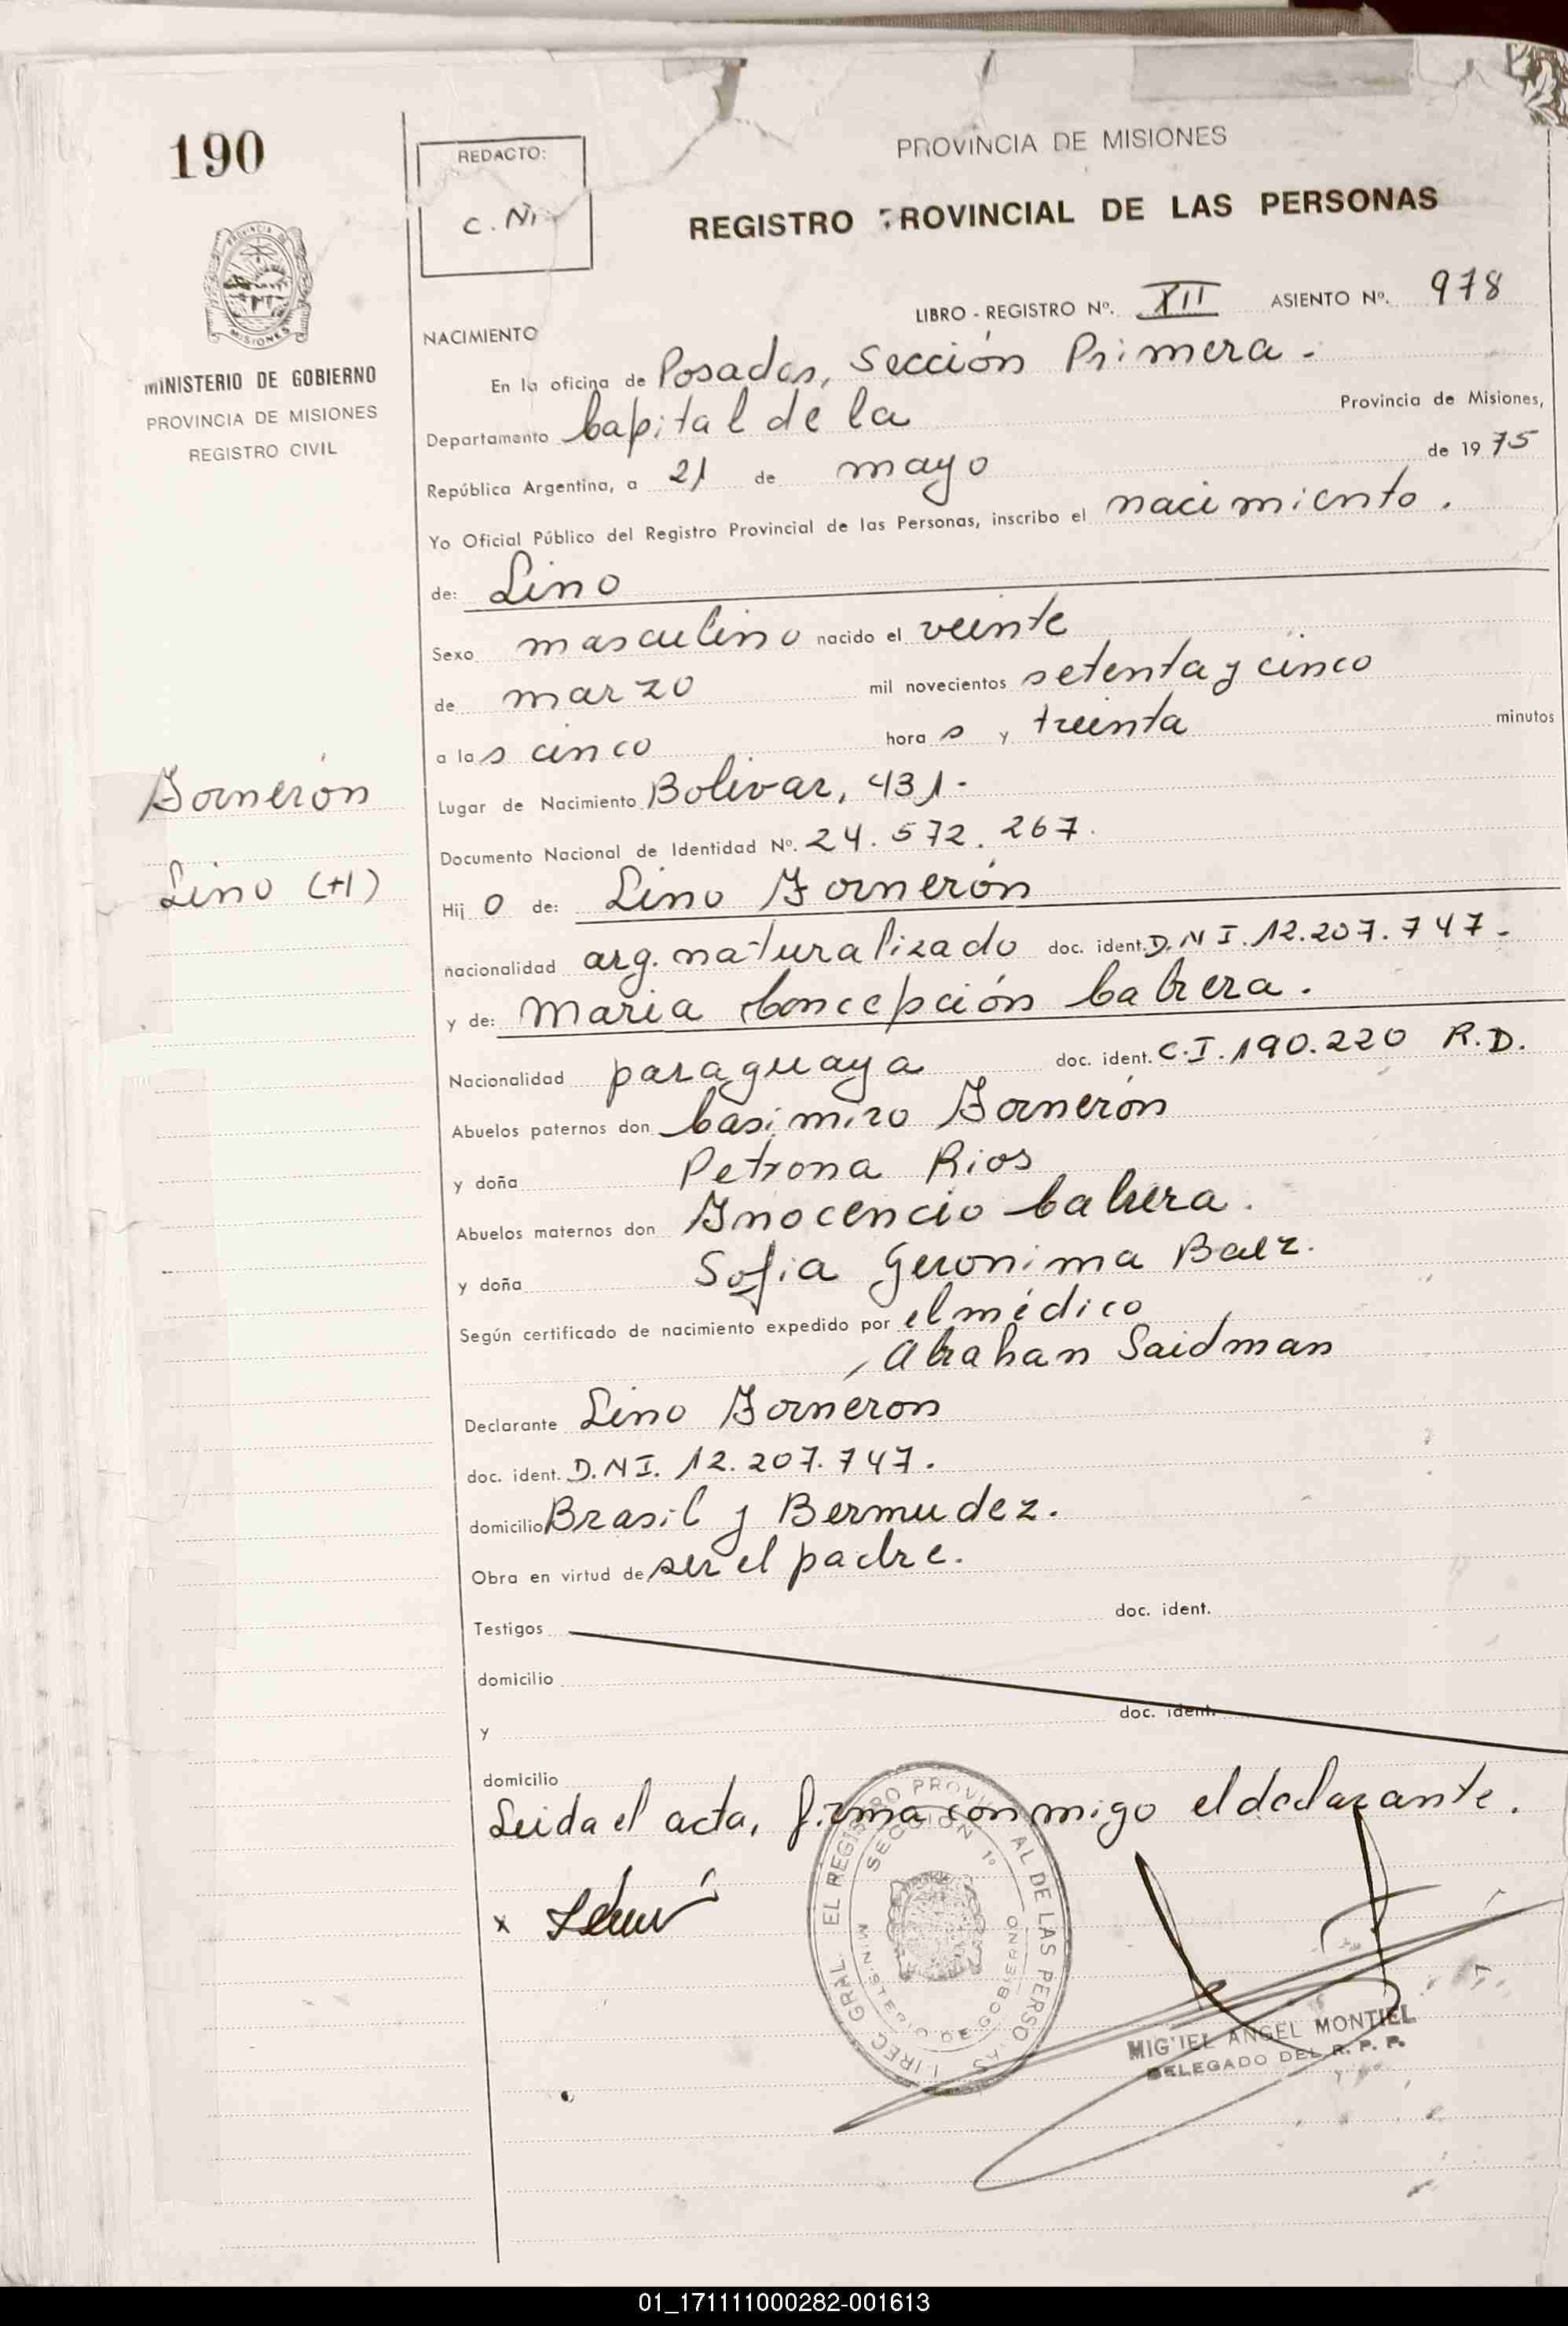 190
REDACTO:
C. N.
PROVINCIA DE MISIONES
REGISTRO PROVINCIAL DE LAS PERSONAS
LIBRO - REGISTRO Nº. XII ASIENTO Nº. 978
MINISTERIO DE GOBIERNO
PROVINCIA DE MISIONES
REGISTRO CIVIL
NACIMIENTO
En la oficina de Posadas, Sección Primera.
Departamento Capital de la Provincia de Misiones,
República Argentina, a 21 de mayo de 1975
Yo Oficial Público del Registro Provincial de las Personas, inscribo el nacimiento.
de: Lino
Sexo masculino nacido el veinte
de marzo mil novecientos setenta y cinco
a las cinco horas y treinta minutos
Fornerón
Lugar de Nacimiento Bolivar, 431.
Documento Nacional de Identidad Nº. 24.572.267.
Lino (+1)
Hijo de: Lino Fornerón
nacionalidad arg. naturalizado doc. ident. D.N I. 12.207.747.
y de: Maria Concepción Cabrera.
Nacionalidad paraguaya doc. ident. C.I. 190.220 R.D.
Abuelos paternos don Casimiro Fornerón
y doña Petrona Rios
Abuelos maternos don Inocencio Cabrera.
y doña Sofia Geronima Baez.
Según certificado de nacimiento expedido por el médico
Abrahan Saidman
Declarante Lino Forneron
doc. ident. D.N I. 12.207.747.
domicilio Brasil y Bermudez.
Obra en virtud de ser el padre.
Testigos doc. ident.
domicilio
y doc. ident.
domicilio
Leida el acta, firma conmigo el declarante.
x
SECCION 1º
MINISTERIO DE GOBIERNO
MIGUEL ANGEL MONTIEL
DELEGADO DEL R. P. P.
01_171111000282-001613